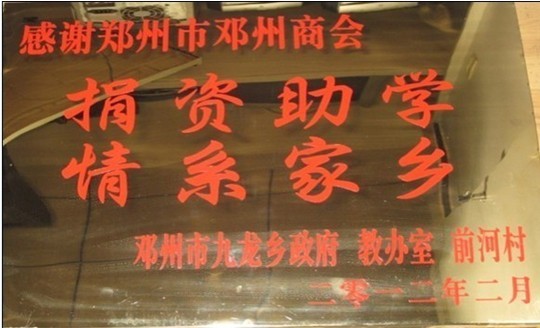 感谢郑州市邓州商会
捐资助学
情系家乡
邓州市九龙乡政府 教办室 前河村
二零一二年二月